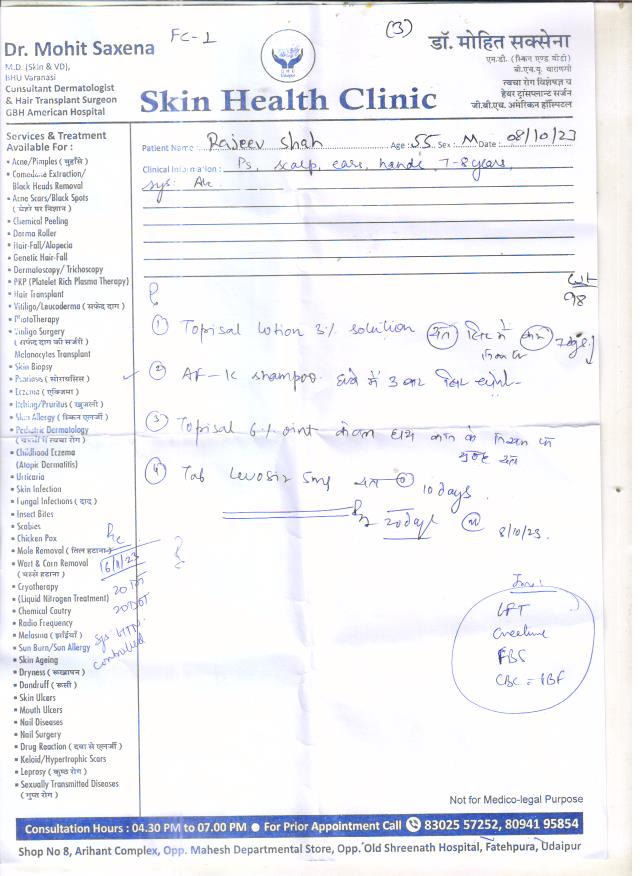 FC-1
(3)
Dr. Mohit Saxena
M.D. (Skin & VD),
BHU Varanasi
Consultant Dermatologist
& Hair Transplant Surgeon
GBH American Hospital
Skin Health Clinic
डॉ. मोहित सक्सेना
एम.डी. (स्किन एण्ड वीडी)
बी.एच.यू. वाराणसी
त्वचा रोग विशेषज्ञ व
हेयर ट्रांसप्लान्ट सर्जन
जी.बी.एच. अमेरिकन हॉस्पिटल
Patient Name : Rajeev Shah Age : 55 Sex : M Date : 08/10/23
Clinical Information : Ps, scalp, ears, hands, 7-8 years,
sys:
Services & Treatment
Available For :
• Acne/Pimples ( मुहाँसे )
• Comedone Extraction/
Black Heads Removal
• Acne Scars/Black Spots
( चेहरे पर निशान )
• Chemical Peeling
• Derma Roller
• Hair-Fall/Alopecia
• Genetic Hair-Fall
• Dermatoscopy/ Trichoscopy
• PRP (Platelet Rich Plasma Therapy)
• Hair Transplant
• Vitiligo/Leucoderma ( सफेद दाग )
• PhotoTherapy
• Vitiligo Surgery
( सफेद दाग की सर्जरी )
Melanocytes Transplant
• Skin Biopsy
• Psoriasis ( सोरायसिस )
• Eczema ( एक्जिमा )
• Itching/Pruritus ( खुजली )
• Skin Allergy ( स्किन एलर्जी )
• Pediatric Dermatology
( बच्चों में त्वचा रोग )
• Childhood Eczema
(Atopic Dermatitis)
• Urticaria
• Skin Infection
• Fungal Infections ( दाद )
• Insect Bites
• Scabies
• Chicken Pox
• Mole Removal ( तिल हटाना )
• Wart & Corn Removal
( मस्से हटाना )
• Cryotherapy
• (Liquid Nitrogen Treatment)
• Chemical Cautry
• Radio Frequency
• Melasma ( झाईयाँ )
• Sun Burn/Sun Allergy
• Skin Ageing
• Dryness ( रूखापन )
• Dandruff ( रूसी )
• Skin Ulcers
• Mouth Ulcers
• Nail Diseases
• Nail Surgery
• Drug Reaction ( दवा से एलर्जी )
• Keloid/Hypertrophic Scars
• Leprosy ( कुष्ठ रोग )
• Sexually Transmitted Diseases
( गुप्त रोग )
98
① Topisal lotion 3% solution
② AF-K shampoo में 3 बार
③ Topisal 6% oint
④ Tab Levosiz 5mg 10 days
20 days
8/10/23.
LFT
Creatine
FBS
CBC
controlled
Not for Medico-legal Purpose
Consultation Hours : 04.30 PM to 07.00 PM ● For Prior Appointment Call 83025 57252, 80941 95854
Shop No 8, Arihant Complex, Opp. Mahesh Departmental Store, Opp. Old Shreenath Hospital, Fatehpura, Udaipur